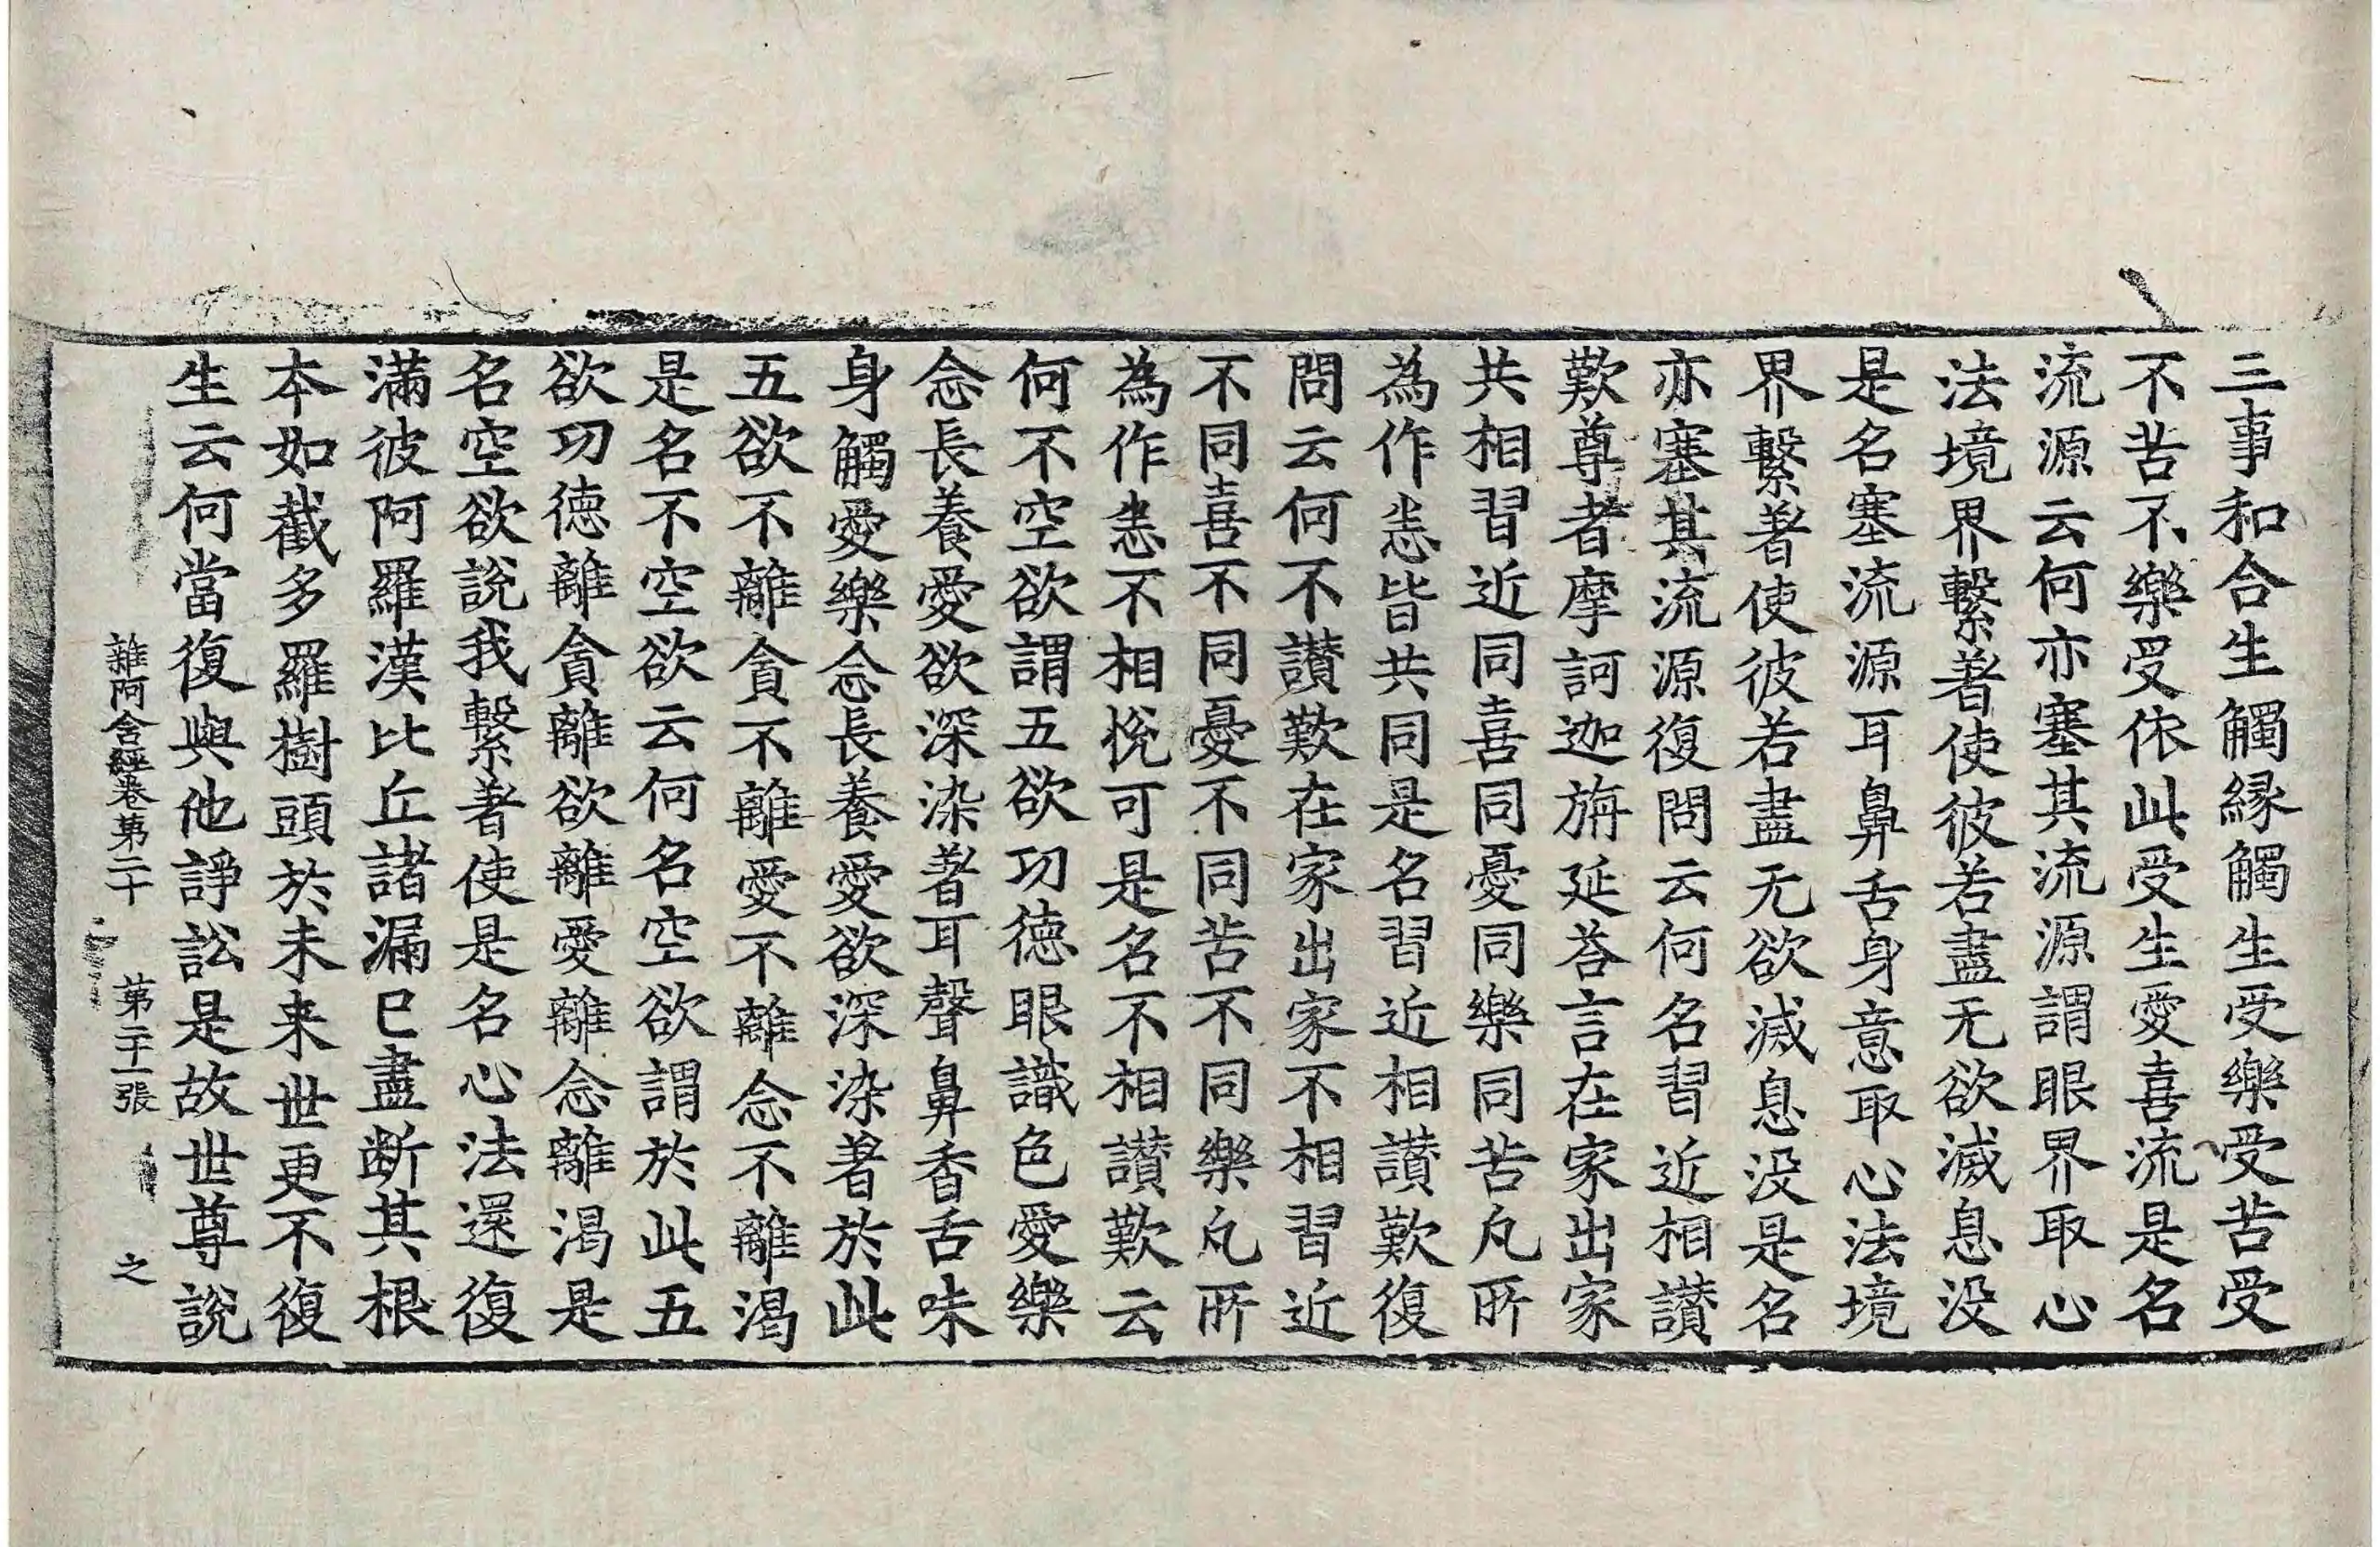 三事和合生觸緣觸生受樂受苦受
不苦不樂受依此受生愛喜流是名
流源云何亦塞其流源謂眼界取心
法境界繫著使彼若盡无欲滅息没
是名塞流源耳鼻舌身意取心法境
界繫著使彼若盡无欲滅息没是名
亦塞其流源復問云何名習近相讃
歎尊者摩訶迦旃延荅言在家出家
共相習近同喜同憂同樂同苦凢所
為作悉皆共同是名習近相讃歎復
問云何不讃歎在家出家不相習近
不同喜不同憂不同苦不同樂凢所
為作悉不相悅可是名不相讃歎云
何不空欲謂五欲功德眼識色愛樂
念長養愛欲深染著耳聲鼻香舌味
身觸愛樂念長養愛欲深染著於此
五欲不離貪不離愛不離念不離渴
是名不空欲云何名空欲謂於此五
欲功德離貪離欲離愛離念離渴是
名空欲說我繫著使是名心法還復
滿彼阿羅漢比丘諸漏已盡斷其根
本如截多羅樹頭於未来世更不復
生云何當復與他諍訟是故世尊說
雜阿含經卷第二十 第二十一張 之